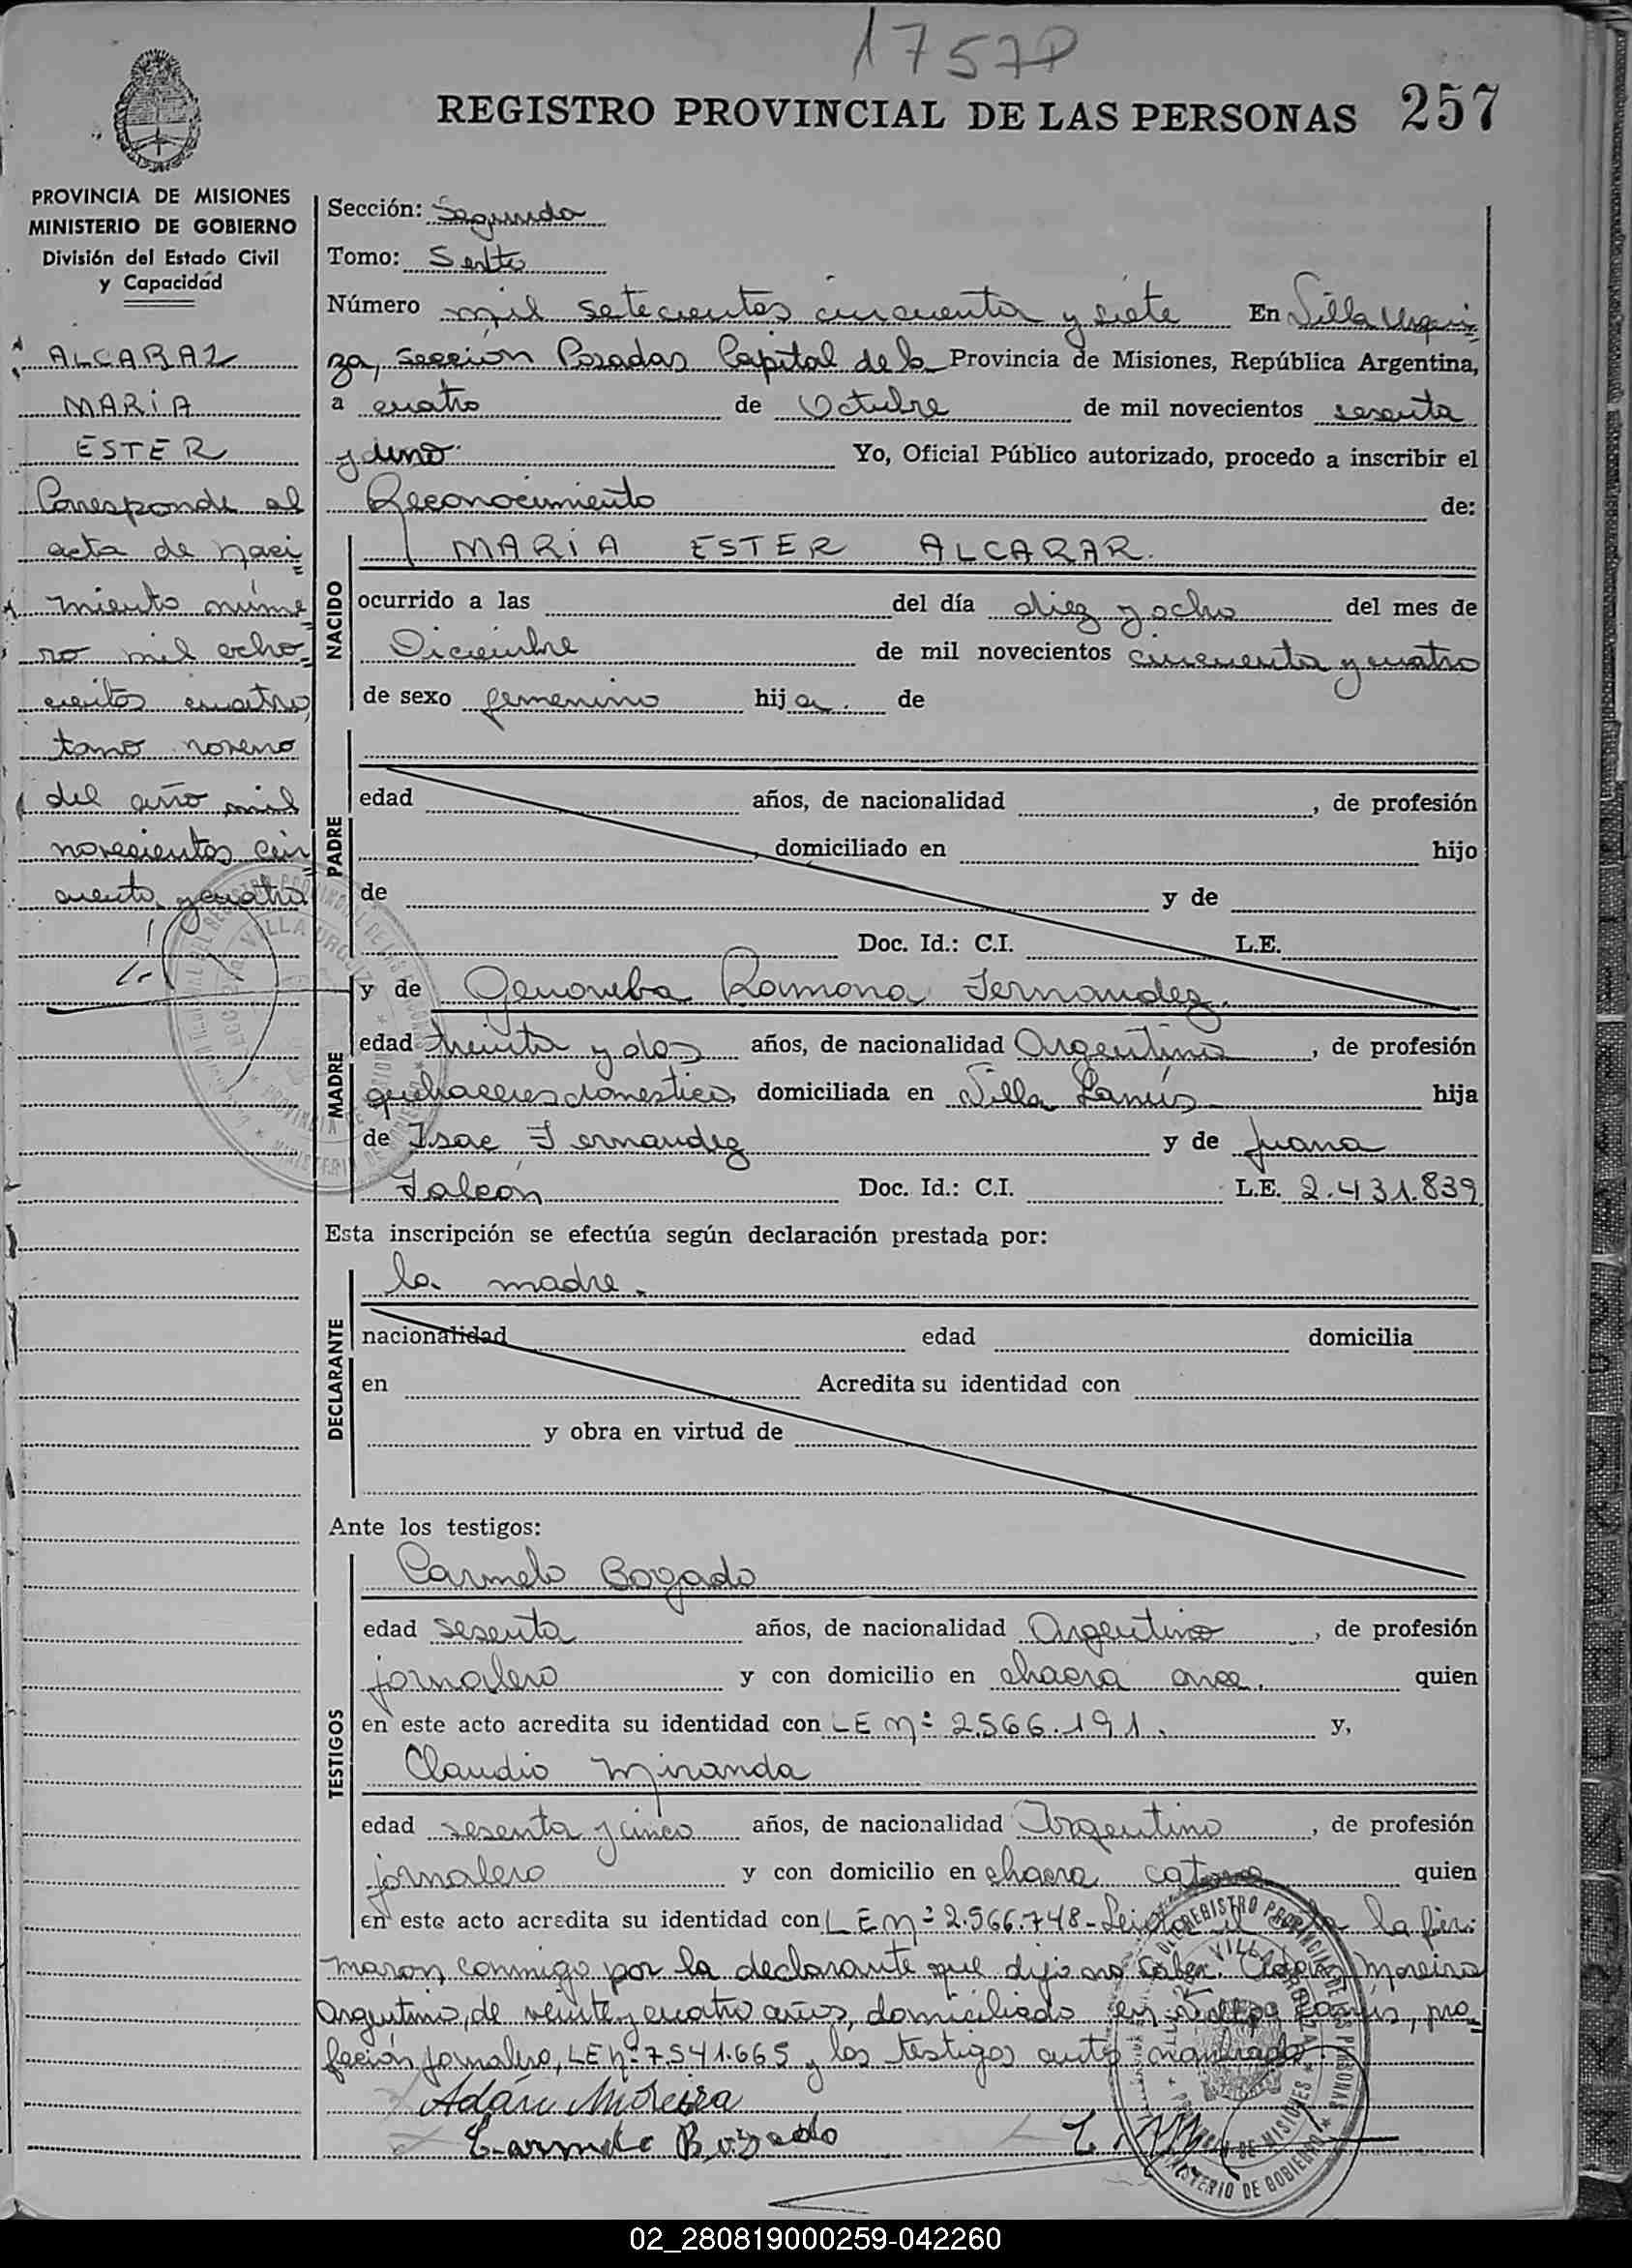 1757P
REGISTRO PROVINCIAL DE LAS PERSONAS 257
PROVINCIA DE MISIONES
MINISTERIO DE GOBIERNO
División del Estado Civil
y Capacidad
ALCARAZ
MARIA
ESTER
Corresponde al
acta de naci
miento núme
ro mil ocho
cientos cuatro,
tomo noveno
del año mil
novecientos cin
cuenta y cuatro
Sección: Segunda
Tomo: Sexto
Número mil setecientos cincuenta y siete En Villa Urqui
za, sección Posadas Capital de la Provincia de Misiones, República Argentina,
a cuatro de Octubre de mil novecientos sesenta
y uno. Yo, Oficial Público autorizado, procedo a inscribir el
Reconocimiento de:
NACIDO
MARIA ESTER ALCARAR.
ocurrido a las del día diez y ocho del mes de
Diciembre de mil novecientos cincuenta y cuatro
de sexo femenino hija. de
PADRE
edad años, de nacionalidad , de profesión
, domiciliado en hijo
de y de
Doc. Id.: C.I. L.E.
MADRE
y de Genoveba Ramona Fernandez.
edad treinta y dos años, de nacionalidad Argentina, de profesión
quehaceres domestico, domiciliada en Villa Lanús hija
de Isac Fernandez y de Juana
Falcón Doc. Id.: C.I. L.E. 2.431.839
Esta inscripción se efectúa según declaración prestada por:
DECLARANTE
la madre.
nacionalidad edad domicilia
en Acredita su identidad con
y obra en virtud de
Ante los testigos:
TESTIGOS
Carmelo Bogado
edad sesenta años, de nacionalidad Argentino, de profesión
jornalero y con domicilio en chacra once. quien
en este acto acredita su identidad con LE Nº 2.566.191. y,
Claudio Miranda
edad sesenta y cinco años, de nacionalidad Argentino, de profesión
jornalero y con domicilio en chacra catorce quien
en este acto acredita su identidad con LE Nº 2.566.748- Leida el acta la fir
maron conmigo por la declarante que dijo no saber. Adán Moreira
Argentino, de veinte y cuatro años, domiciliado en Villa Lanús, pro
feción jornalero, LE Nº 7.541.665 y los testigos ante nombrado.
Adán Moreira
Carmelo Bogado
02_280819000259-042260